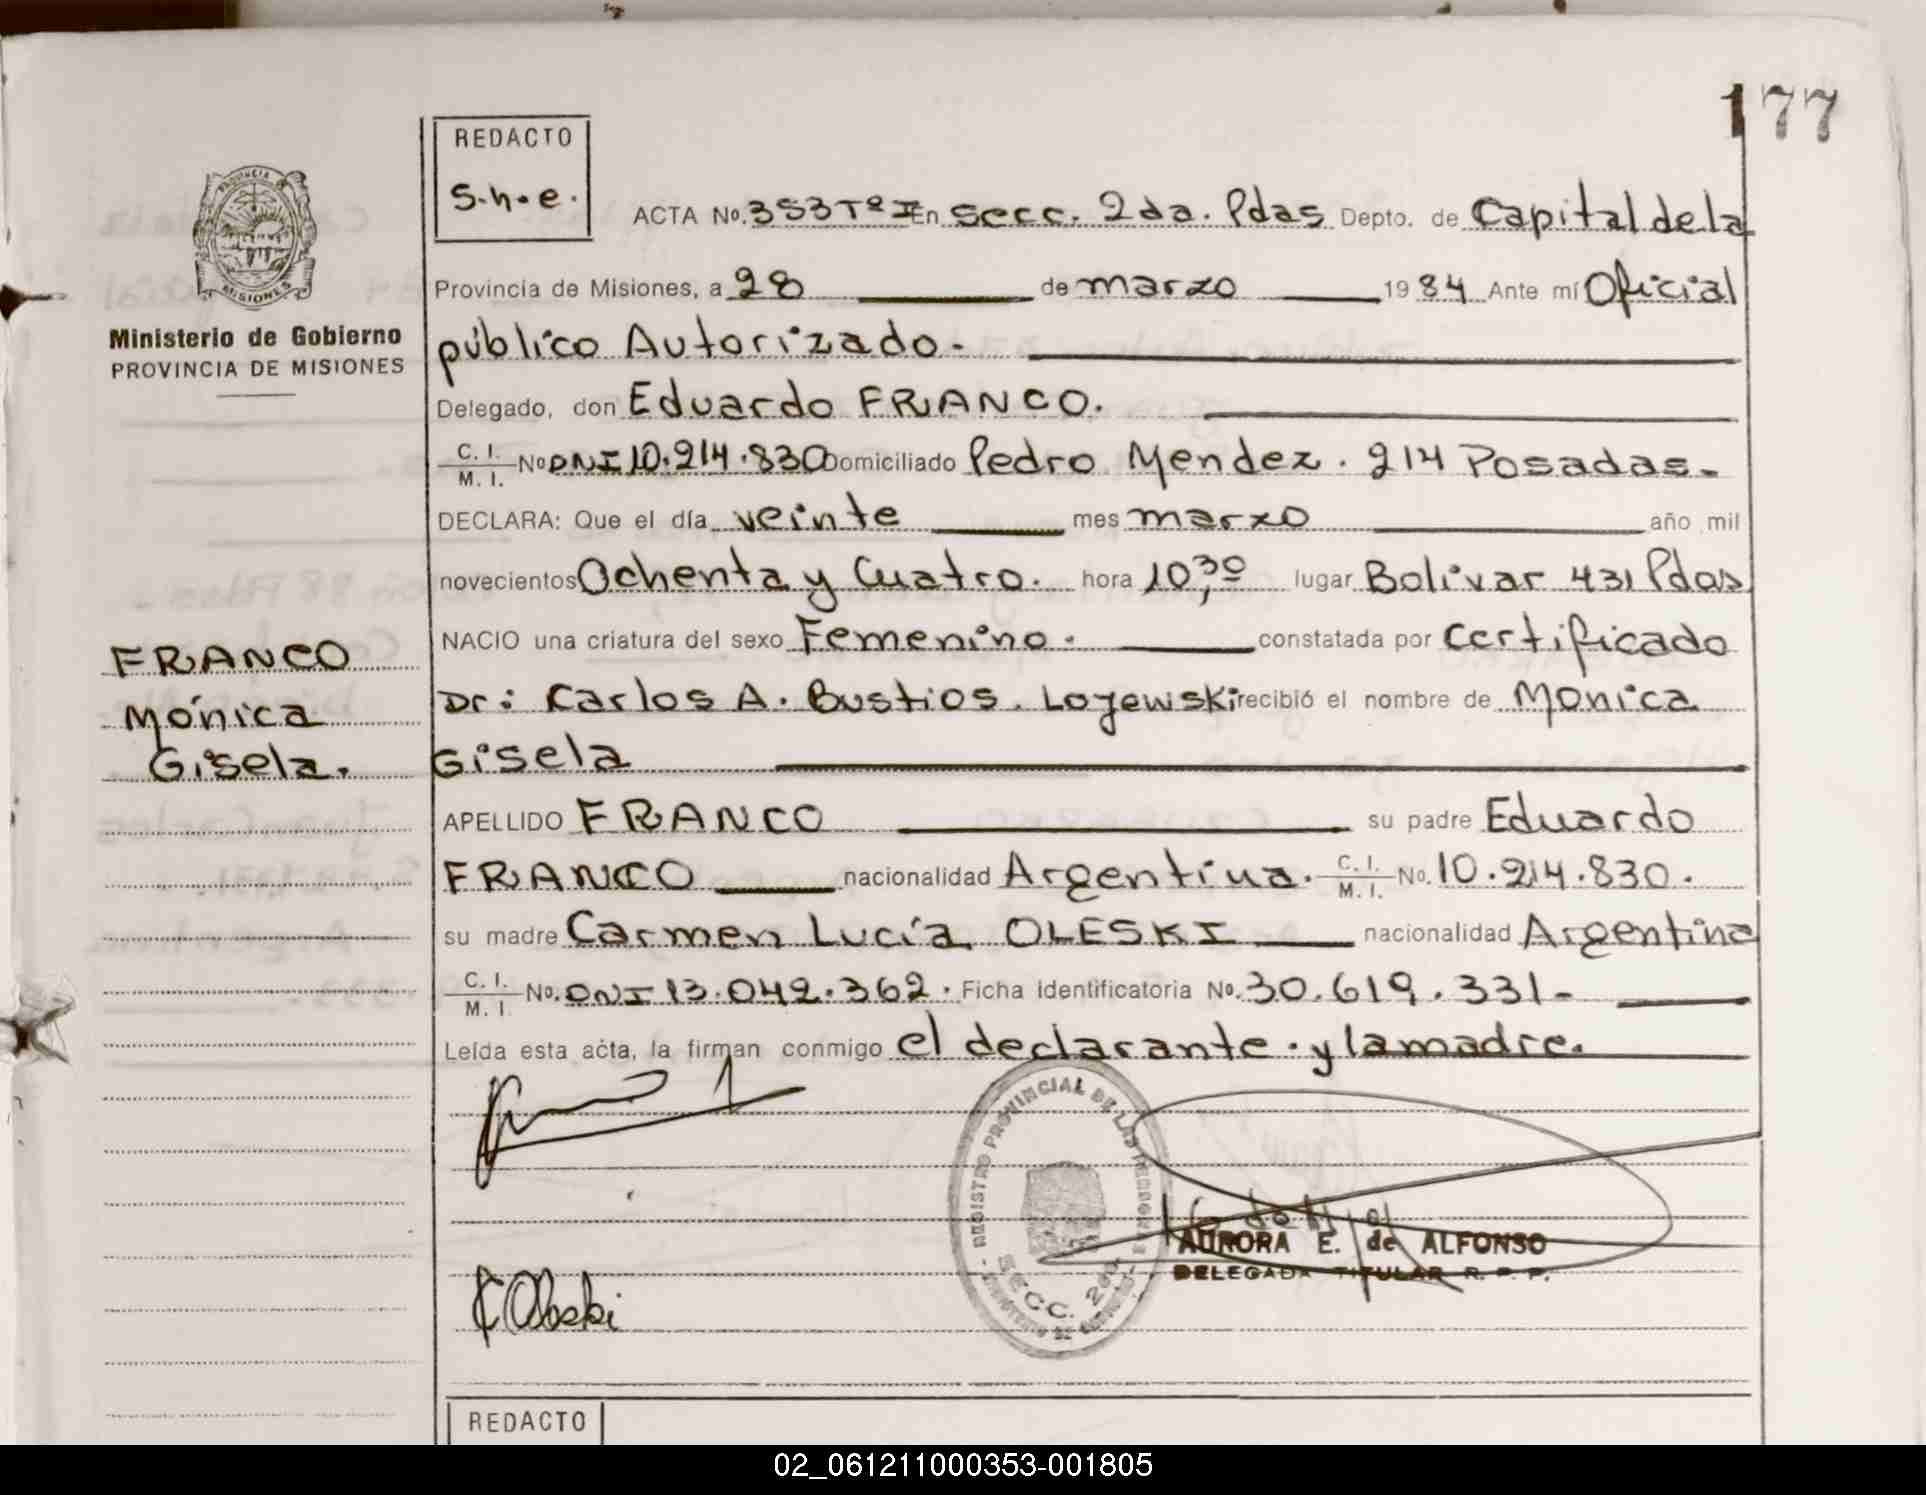 177
REDACTO
S.h.e.
PROVINCIA
MISIONES
Ministerio de Gobierno
PROVINCIA DE MISIONES
ACTA No. 353 Tº I En Secc. 2da. Pdas Depto. de Capital de la
Provincia de Misiones, a 28 de marzo 1984 Ante mí Oficial
público Autorizado.
Delegado, don Eduardo FRANCO.
C. I. / M. I. No DNI 10.214.830 Domiciliado Pedro Mendez. 214 Posadas.
DECLARA: Que el día veinte mes marzo año mil
novecientos Ochenta y Cuatro. hora 10,30 lugar Bolivar 431 Pdas
NACIO una criatura del sexo Femenino. constatada por certificado
Dr: Carlos A. Bustios. Lojewski recibió el nombre de Monica
Gisela
FRANCO
Mónica
Gisela.
APELLIDO FRANCO su padre Eduardo
FRANCO nacionalidad Argentina. C. I. / M. I. No. 10.214.830.
su madre Carmen Lucía OLESKI nacionalidad Argentina
C. I. / M. I. No. DNI 13.042.362. Ficha Identificatoria No. 30.619.331-
Leída esta acta, la firman conmigo el declarante. y la madre.
REGISTRO PROVINCIAL DE LAS PERSONAS
SECC. 2da
AURORA E. de ALFONSO
DELEGADA TITULAR R. P. P.
C Oleski
REDACTO
02_061211000353-001805